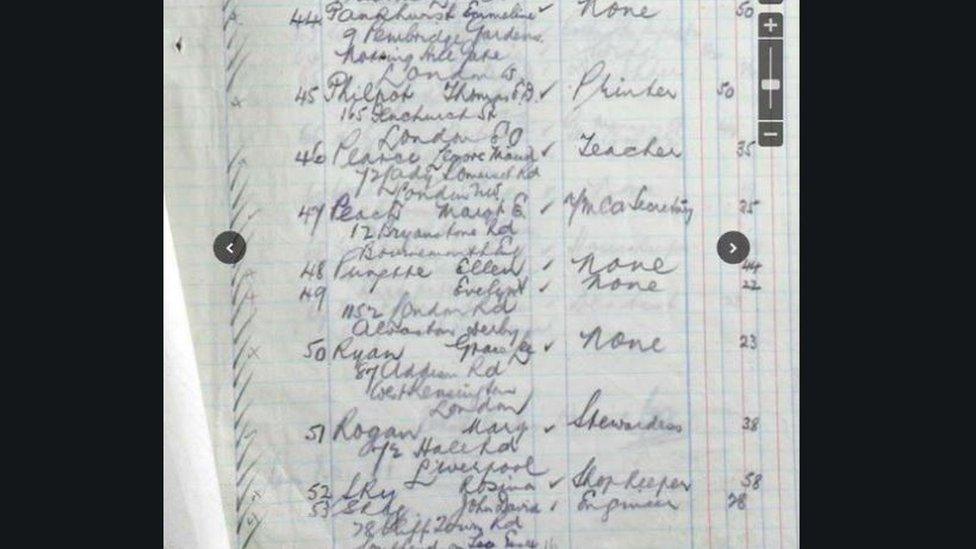 44 Pankhurst Emmeline ✓ None 50
9 Pembridge Gardens
Notting Hill Gate
London W.
45 Philpot Thomas E.D. ✓ Printer 50
165 Fenchurch St
London EC
46 Pearce Lenore Maud ✓ Teacher 35
72 Lady Somerset Rd
London NW.
47 Peach Margt E. ✓ YMCA Secretary 25
12 Bryanstone Rd
Bournemouth Eng
48 Ellen ✓ None 44
49 Evelyn ✓ None 22
1152 London Rd
Alvaston Derby
50 Ryan Grace ✓ None 23
87 Addison Rd
West Kensington
London
51 Rogan Mary ✓ Stewardess 38
Hale Rd
Liverpool
52 Sky Rosina ✓ Shopkeeper 58
53 John David ✓ Engineer 28
78 Cliff Town Rd
Southend on Sea Essex